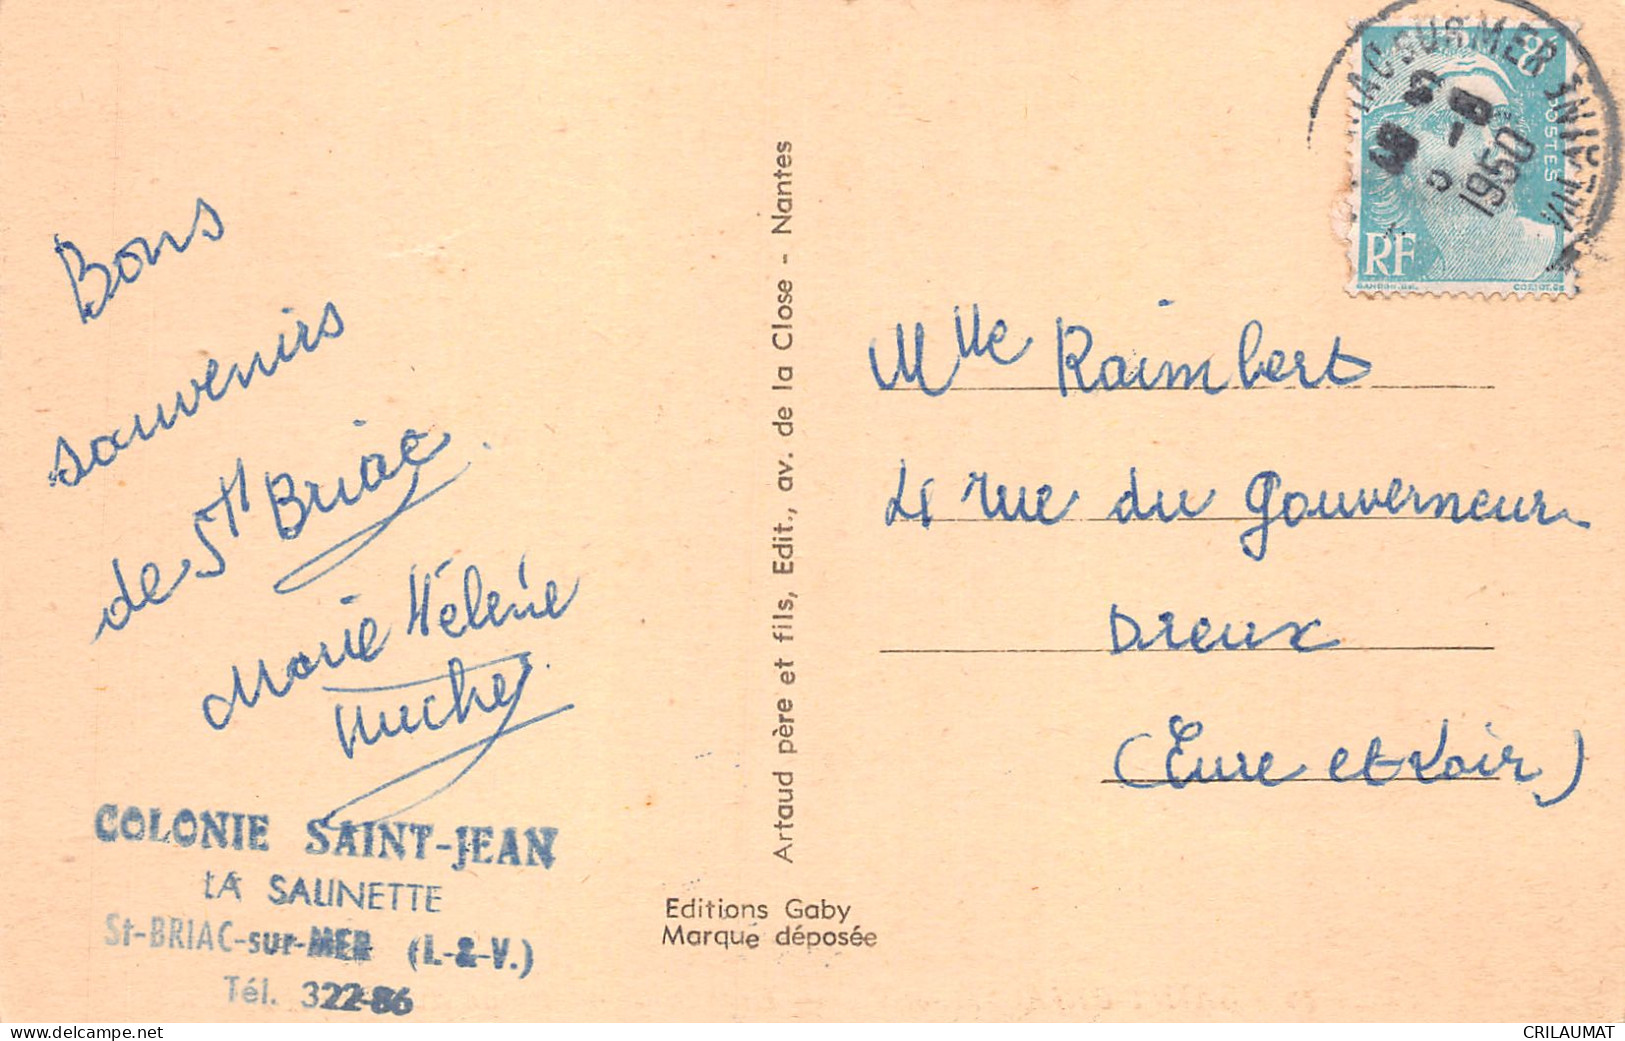 Bons
souvenirs
de St Briac.
Marie Hélène
COLONIE SAINT-JEAN
LA SALINETTE
St-BRIAC-sur-MER (I.-&-V.)
Tél. 322-86
Artaud père et fils, Edit., av. de la Close - Nantes
Editions Gaby
Marque déposée
SUR MER
VILAINE
1950
8F
POSTES
RF
GANDON
Mlle Raimbert
4 rue du Gouverneur
Dreux
(Eure et Loir)
delcampe.net
CRILAUMAT